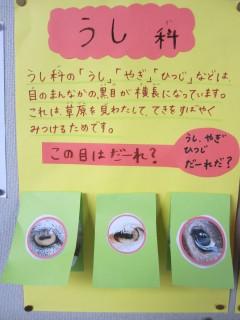 うし 科
うし科の「うし」、「やぎ」「ひつじ」などは、
目のまんなかの黒目が横長になっています。
これは、草原を見わたして、てきをすばやく
みつけるためです。
この目はだーれ？
うし、やぎ
ひつじ
だれだ？